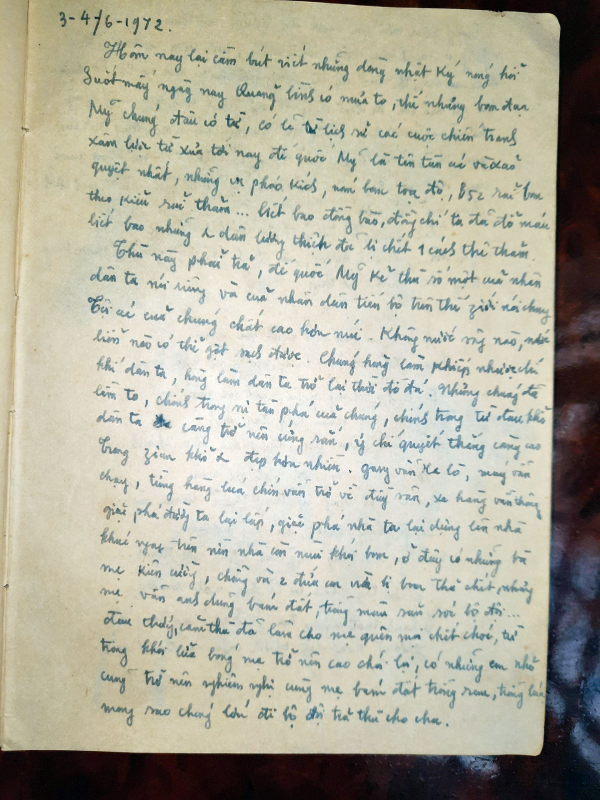 3-4/6-1972.
Hôm nay lại cầm bút viết những dòng nhật ký nóng hổi
Suốt mấy ngày nay Quảng Bình có mưa to, thì những bom đạn
Mỹ chúng đều có từ, có lẽ lịch sử các cuộc chiến tranh
xâm lược từ xưa tới nay đế quốc Mỹ là tên tàn ác và xảo
quyệt nhất, những pháo kích, ném bom tọa độ, B52 rải bom
theo kiểu rải thảm... biết bao đồng bào, đồng chí ta đã đổ máu
biết bao những dân lương thiện đã bị chết 1 cách thê thảm.
Thù này phải trả, đế quốc Mỹ kẻ thù số một của nhân
dân ta nói riêng và của nhân dân tiến bộ trên thế giới nói chung
Tội ác của chúng chất cao hơn núi. Không nước sông nào, nước
biển nào có thể gột sạch được. Chúng hòng làm khiếp nhược chí
khí dân ta, hòng làm dân ta trở lại thời đồ đá. Nhưng chúng đã
lầm to, chính trong sự tàn phá của chúng, chính trong từ đau khổ
dân ta càng trở nên cứng rắn, ý chí quyết thắng càng cao
trong gian khổ đẹp hơn nhiều, quay vẫn xe tơ, máy vẫn
chạy, từng hàng lúa chín vẫn trở về đầy sân, xe hàng vẫn thông
giặc phá đường ta lại lấp, giặc phá nhà ta lại dựng lên nhà
khác ngay trên nền nhà còn mùi khói bom, ở đây có những bà
mẹ kiên cường, chồng và 2 đứa con bị bom thả chết, những
mẹ vẫn anh dũng bám đất, trồng rau nuôi bộ đội...
đau thương, căm thù đã làm cho mẹ quên mọi chết chóc, từ
trong khói lửa bóng mẹ trở nên cao chói lọi, có những em nhỏ
cũng trở nên nghiêm nghị cùng mẹ bám đất trồng rau, trồng lúa
mong sao chóng lớn đi bộ đội trả thù cho cha.